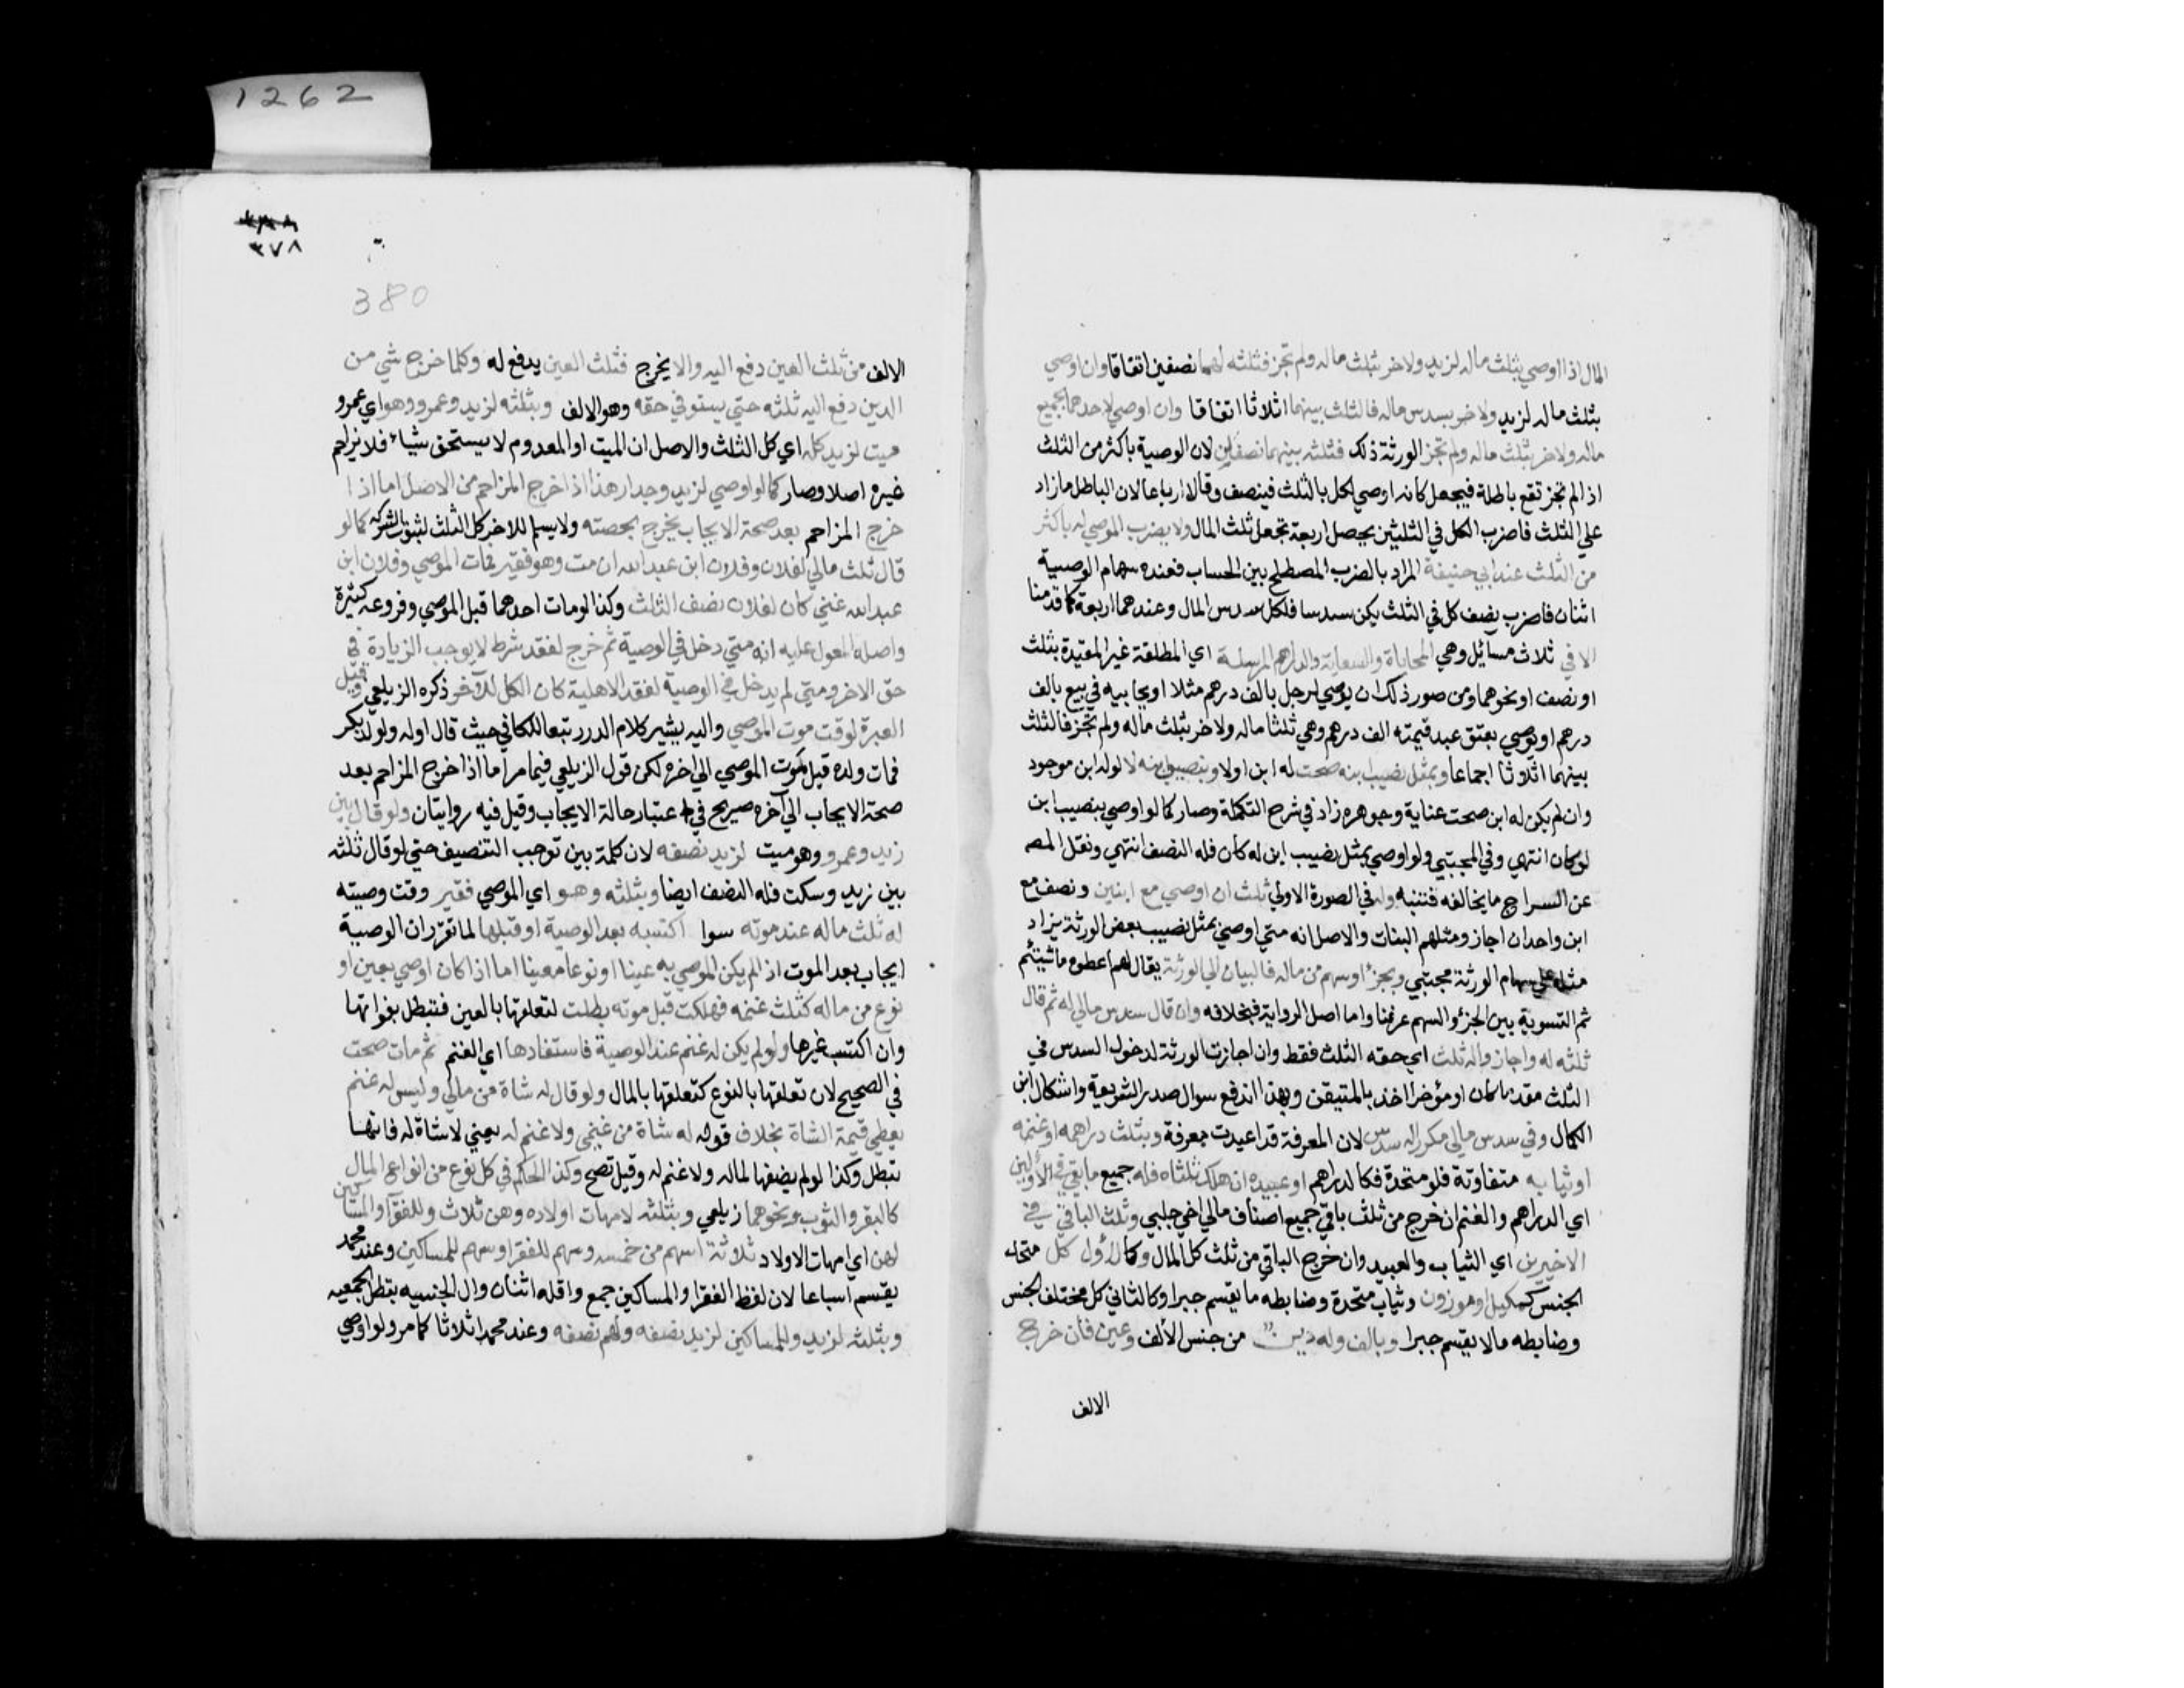 المال اذا اوصي بثلث ماله لزيد ولاخر بثلث ماله ولم تجز فثلثه لهما نصفين اتفاقا وان اوصي
بثلث ماله لزيد ولاخر بسدس ماله فالثلث بينهما اثلاثا اتفاقا وان اوصي لاحدهما بجميع
ماله ولاخر بثلث ماله ولم تجز الورثة ذلك فثلثه بينهما نصفين لان الوصية باكثر من الثلث
اذا لم تجز تقع باطلة فيجعل كانه اوصي لكل بالثلث فينصف وقالا ارباعا لان الباطل ما زاد
علي الثلث فاضرب الكل في الثلثين يحصل اربعة تجعل ثلث المال ولا يضرب الموصي له باكثر
من الثلث عند ابي حنيفة المراد بالضرب المصطلح بين الحساب فعنده سهام الوصية
اثنان فاضرب نصف كل في الثلث يكن سدسا فلكل سدس المال وعندهما اربعة كما قدمنا
الا في ثلاث مسائل وهي المحاباة والسعاية والدراهم المرسلة اي المطلقة غير المقيدة بثلث
او نصف او نحوهما ومن صور ذلك ان يوصي لرجل بالف درهم مثلا او يحابيه في بيع بالف
درهم او يوصي بعتق عبد قيمته الف درهم وهي ثلثا ماله ولاخر بثلث ماله ولم تجز فالثلث
بينهما اثلاثا اجماعا وبمثل نصيب ابنه صحت له ابن اولا وبنصيب ابنه لا لو له ابن موجود
وان لم يكن له ابن صحت عناية وجوهره زاد في شرح التكملة وصار كما لو اوصي بنصيب ابن
لو كان انتهي وفي المجتبي ولو اوصي بمثل نصيب ابن له كان فله النصف انتهي ونقل المصه
عن السراج ما يخالفه فتنبه وله في الصورة الاولي ثلث ان اوصي مع ابنين ونصف مع
ابن واحد ان اجاز ومثلهم البنات والاصل انه متي اوصي بمثل نصيب بعض الورثة يزاد
مثله علي سهام الورثة مجتبي وبجزء او سهم من ماله فالبيان الي الورثة يقال لهم اعطوه ما شيتم
ثم التسوية بين الجزء والسهم عرفنا واما اصل الرواية فبخلافه وان قال سدس مالي له ثم قال
ثلثه له واجازوا له ثلث اي حقه الثلث فقط وان اجازت الورثة لدخول السدس في
الثلث مقدما كان او مؤخرا اخذا بالمتيقن وبهذا اندفع سوال صدر الشريعة واشكال ابن
الكمال وفي سدس مالي مكررا له سدس لان المعرفة قد اعيدت معرفة وبثلث دراهمه او غنمه
او ثيابه متفاوتة فلو متحدة فكالدراهم او عبيده ان هلك ثلثاه فله جميع ما بقي في الاولين
اي الدراهم والغنم ان خرج من ثلث باقي جميع اصناف مالي اخي جلبي وثلث الباقي في
الاخيرين اي الثياب والعبيد وان خرج الباقي من ثلث كل المال وكالاول كل متحد
الجنس كمكيل وموزون وثياب متحدة وضابطه ما يقسم جبرا وكالثاني كل مختلف الجنس
وضابطه مالا يقسم جبرا وبالف وله دين من جنس الالف وعين فان خرج
الالف
٣٧٨
380
الالف من ثلث العين دفع اليه والا يخرج فثلث العين يدفع له وكلما خرج شي من
الدين دفع اليه ثلثه حتي يستوفي حقه وهو الالف وبثلثه لزيد وعمرو وهو اي عمرو
ميت لزيد كله اي كل الثلث والاصل ان الميت او المعدوم لا يستحق شياء فلا يزاحم
غيره اصلا وصار كما لو اوصي لزيد وجدار هذا اذا خرج المزاحم من الاصل اما اذا
خرج المزاحم بعد صحة الايجاب يخرج بحصته ولا يسلم للاخر كل الثلث لثبوت الشركه كما لو
قال ثلث مالي لفلان وفلان ابن عبد الله ان مت وهو فقير فمات الموصي وفلان ابن
عبد الله غني كان لفلان نصف الثلث وكذا لو مات احدهما قبل الموصي وفروعه كثيرة
واصله المعول عليه انه متي دخل في الوصية ثم خرج لفقد شرط لا يوجب الزيادة في
حق الاخر ومتي لم يدخل في الوصية لفقد الاهلية كان الكل للاخر ذكره الزيلعي وقيل
العبرة لوقت موت الموصي واليه يشير كلام الدرر تبعا للكافي حيث قال اوله ولولد بكر
فمات ولده قبل موت الموصي الي اخره لكن قول الزيلعي فيما مر اما اذا خرج المزاحم بعد
صحة الايجاب الي آخره صريح في اعتبار حالة الايجاب وقيل فيه روايتان ولو قال بين
زيد وعمرو وهو ميت لزيد نصفه لان كلمة بين توجب التنصيف حتي لو قال ثلثه
بين زيد وسكت فله النصف ايضا وبثلثه وهو اي الموصي فقير وقت وصيته
له ثلث ماله عند موته سوا اكتسبه بعد الوصية او قبلها لما تقرر ان الوصية
ايجاب بعد الموت اذا لم يكن الموصي به عينا او نوعا معينا اما اذا كان اوصي بعين او
نوع من ماله كثلث غنمه فهلكت قبل موته بطلت لتعلقها بالعين فتبطل بفواتها
وان اكتسب غيرها ولو لم يكن له غنم عند الوصية فاستفادها اي الغنم ثم مات صحت
في الصحيح لان تعلقها بالنوع كتعلقها بالمال ولو قال له شاة من مالي وليس له غنم
يعطي قيمة الشاة بخلاف قوله له شاة من غنمي ولا غنم له يعني لا شاة له فانها
تبطل وكذا لو لم يضفها لماله ولا غنم له وقيل تصح وكذا الحكم في كل نوع من انواع المال
كالبقر والثوب ونحوهما زيلعي وبثلثه لامهات اولاده وهن ثلاث وللفقرا والمساكين
لهن اي امهات الاولاد ثلاثة اسهم من خمسه وسهم للفقرا وسهم للمساكين وعند محمد
يقسم اسباعا لان لفظ الفقرا والمساكين جمع واقله اثنان وال الجنسيه تبطل الجمعيه
وبثلثه لزيد وللمساكين لزيد نصفه ولهم نصفه وعند محمد اثلاثا كما مر ولو اوصي
1262